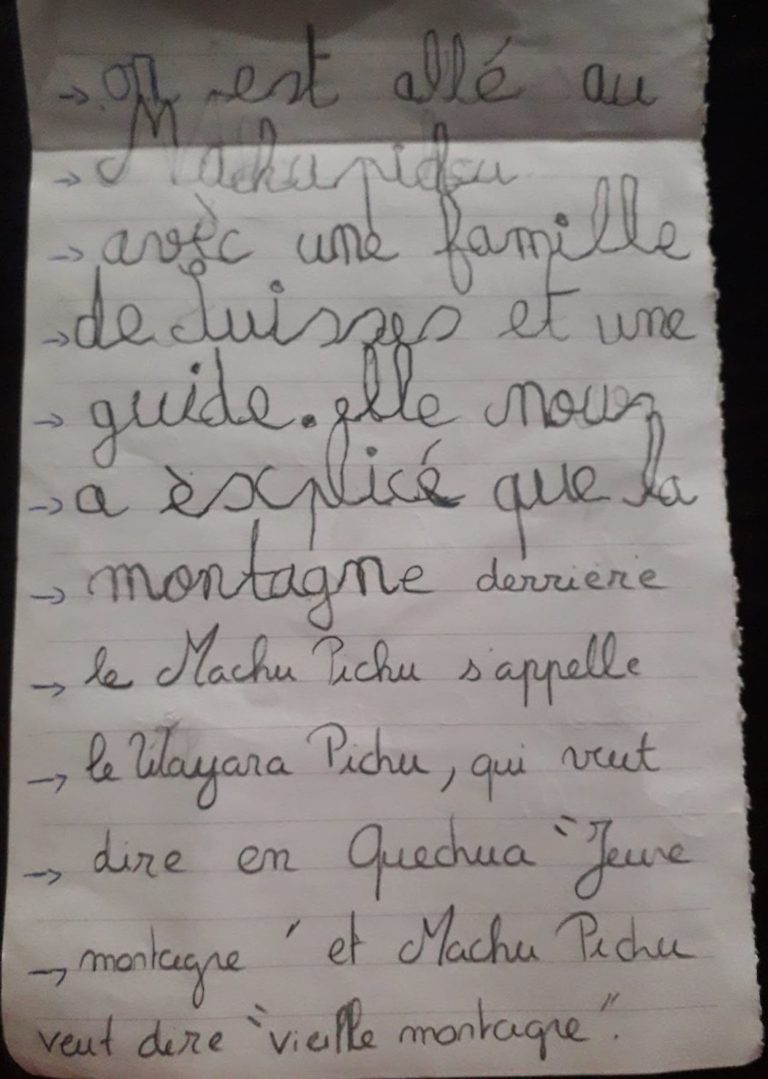 → on est allé au
→ Machupichu
→ avèc une famille
→ de Suisses et une
→ guide. elle nous
→ a èxplicé que la
→ montagne derriere
→ le Machu Pichu s'appelle
→ le Wayara Pichu, qui veut
→ dire en Quechua "Jeune
→ montagne" et Machu Pichu
veut dire "vieille montagne".